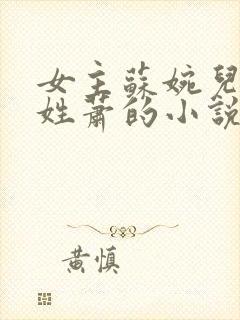 女主蘇婉兒
姓蕭的小說
黄慎